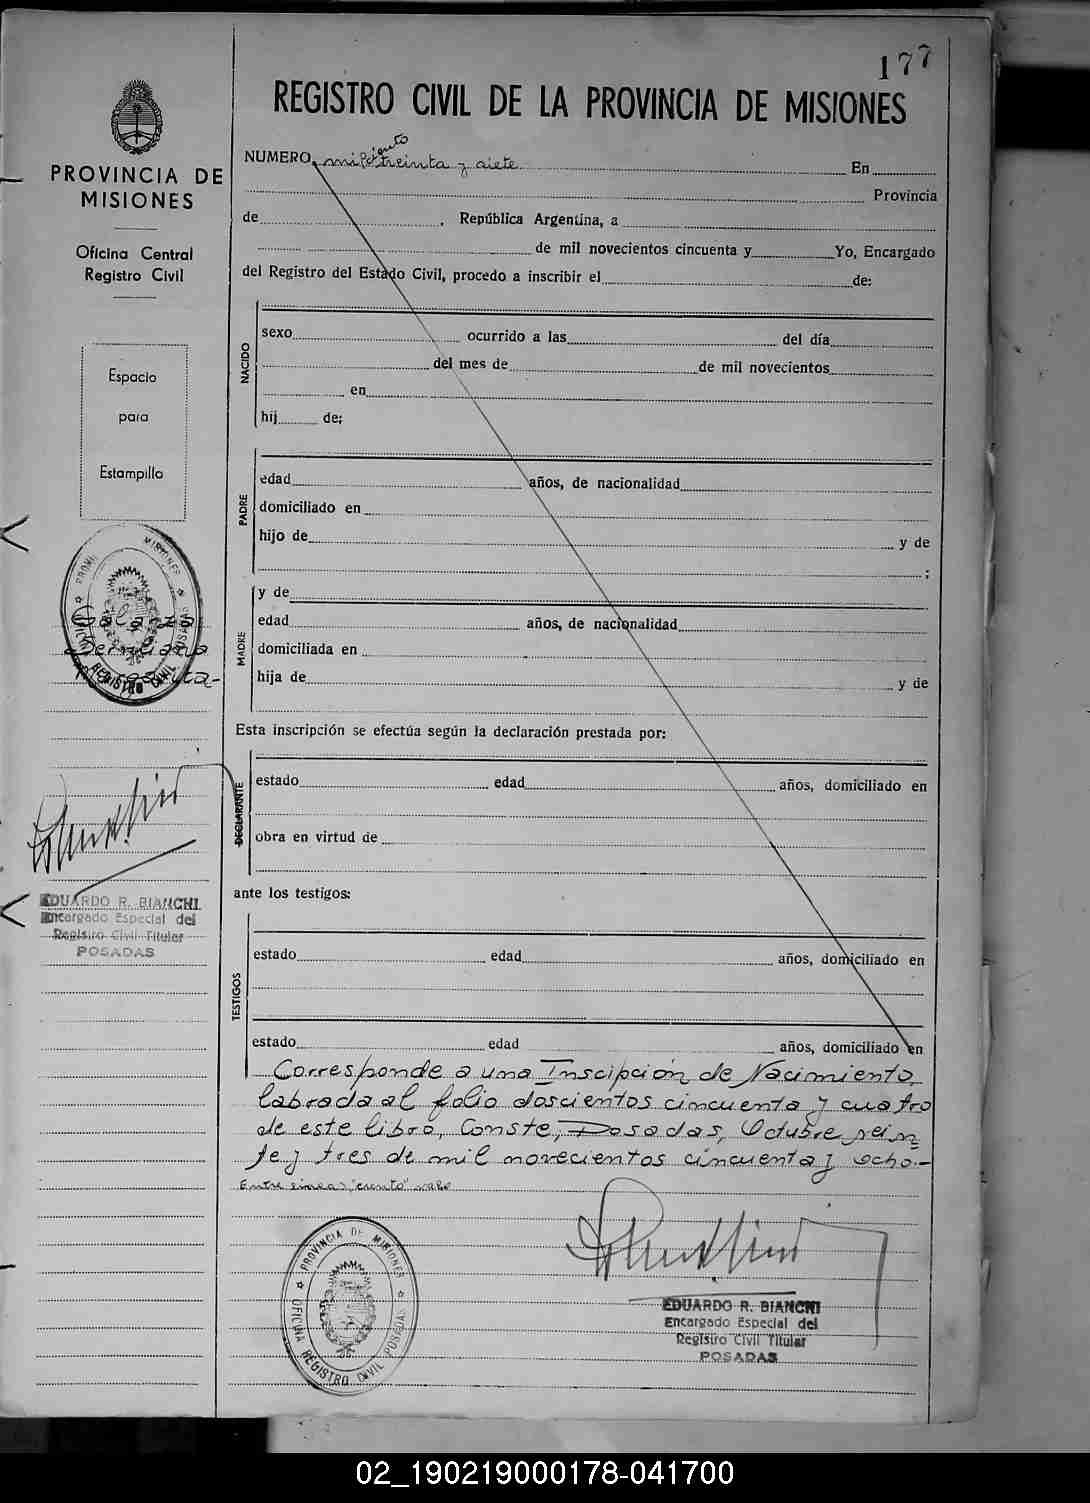 177
REGISTRO CIVIL DE LA PROVINCIA DE MISIONES
PROVINCIA DE
MISIONES
Oficina Central
Registro Civil
Espacio
para
Estampillo
PROVINCIA MISIONES
OFICINA REGISTRO CIVIL POSADAS
EDUARDO R. BIANCHI
Encargado Especial del
Registro Civil Titular
POSADAS
ciento
NUMERO mil treinta y siete En
Provincia
de , República Argentina, a
de mil novecientos cincuenta y Yo, Encargado
del Registro del Estado Civil, procedo a inscribir el de:
NACIDO
sexo ocurrido a las del día
del mes de de mil novecientos
en
hij de:
PADRE
edad años, de nacionalidad
domiciliado en
hijo de y de
;
MADRE
y de
edad años, de nacionalidad
domiciliada en
hija de y de
Esta inscripción se efectúa según la declaración prestada por:
DECLARANTE
estado edad años, domiciliado en
obra en virtud de
ante los testigos:
TESTIGOS
estado edad años, domiciliado en
estado edad años, domiciliado en
Corresponde a una Inscipción de Nacimiento,
labrada al folio doscientos cincuenta y cuatro
de este libro, Conste, Posadas, Octubre vein
te y tres de mil novecientos cincuenta y ocho.-
Entre lineas "ciento" vale
PROVINCIA DE MISIONES
OFICINA REGISTRO CIVIL POSADAS
EDUARDO R. BIANCHI
Encargado Especial del
Registro Civil Titular
POSADAS
02_190219000178-041700